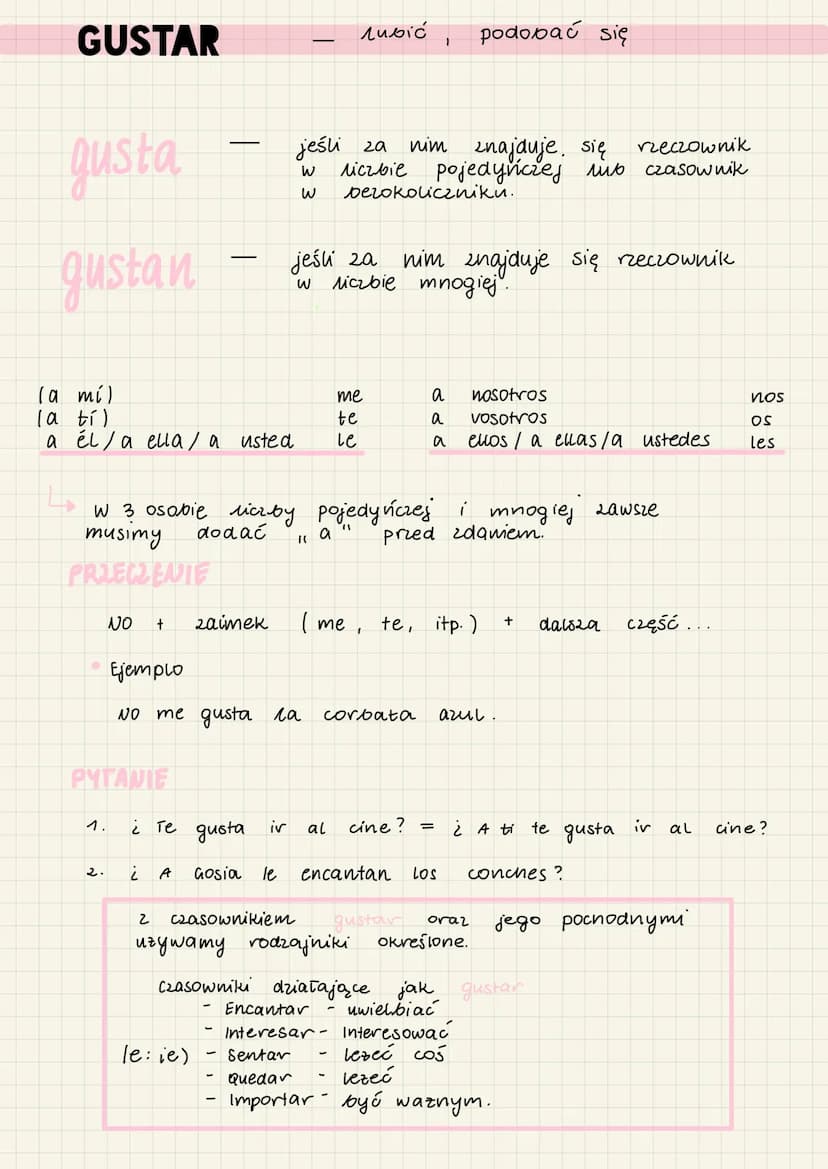 GUSTAR — lubić, podobać się
gusta — jeśli za nim znajduje się rzeczownik
w liczbie pojedyńczej lub czasownik
w bezokoliczniku.
gustan — jeśli za nim znajduje się rzeczownik
w liczbie mnogiej.
(a mí) me a nosotros nos
(a tí) te a vosotros os
a él/a ella/a usted le a ellos/a ellas/a ustedes les
↳ W 3 osobie liczby pojedyńczej i mnogiej zawsze
musimy dodać „a" przed zdaniem.
PRZECZENIE
NO + zaimek (me, te, itp.) + dalsza część...
• Ejemplo
NO me gusta la corbata azul.
PYTANIE
1. ¿Te gusta ir al cine? = ¿A ti te gusta ir al cine?
2. ¿A Gosia le encantan los conches?
z czasownikiem gustar oraz jego pochodnymi
używamy rodzajniki określone.
Czasowniki działające jak gustar
- Encantar - uwielbiać
- Interesar - Interesować
/e:ie) - Sentar - leżeć coś
- Quedar - leżeć
- Importar - być ważnym.